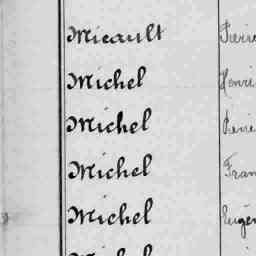 Micault Pierre
Michel Henri
Michel Pierre
Michel Fran
Michel Eugèn
Michel